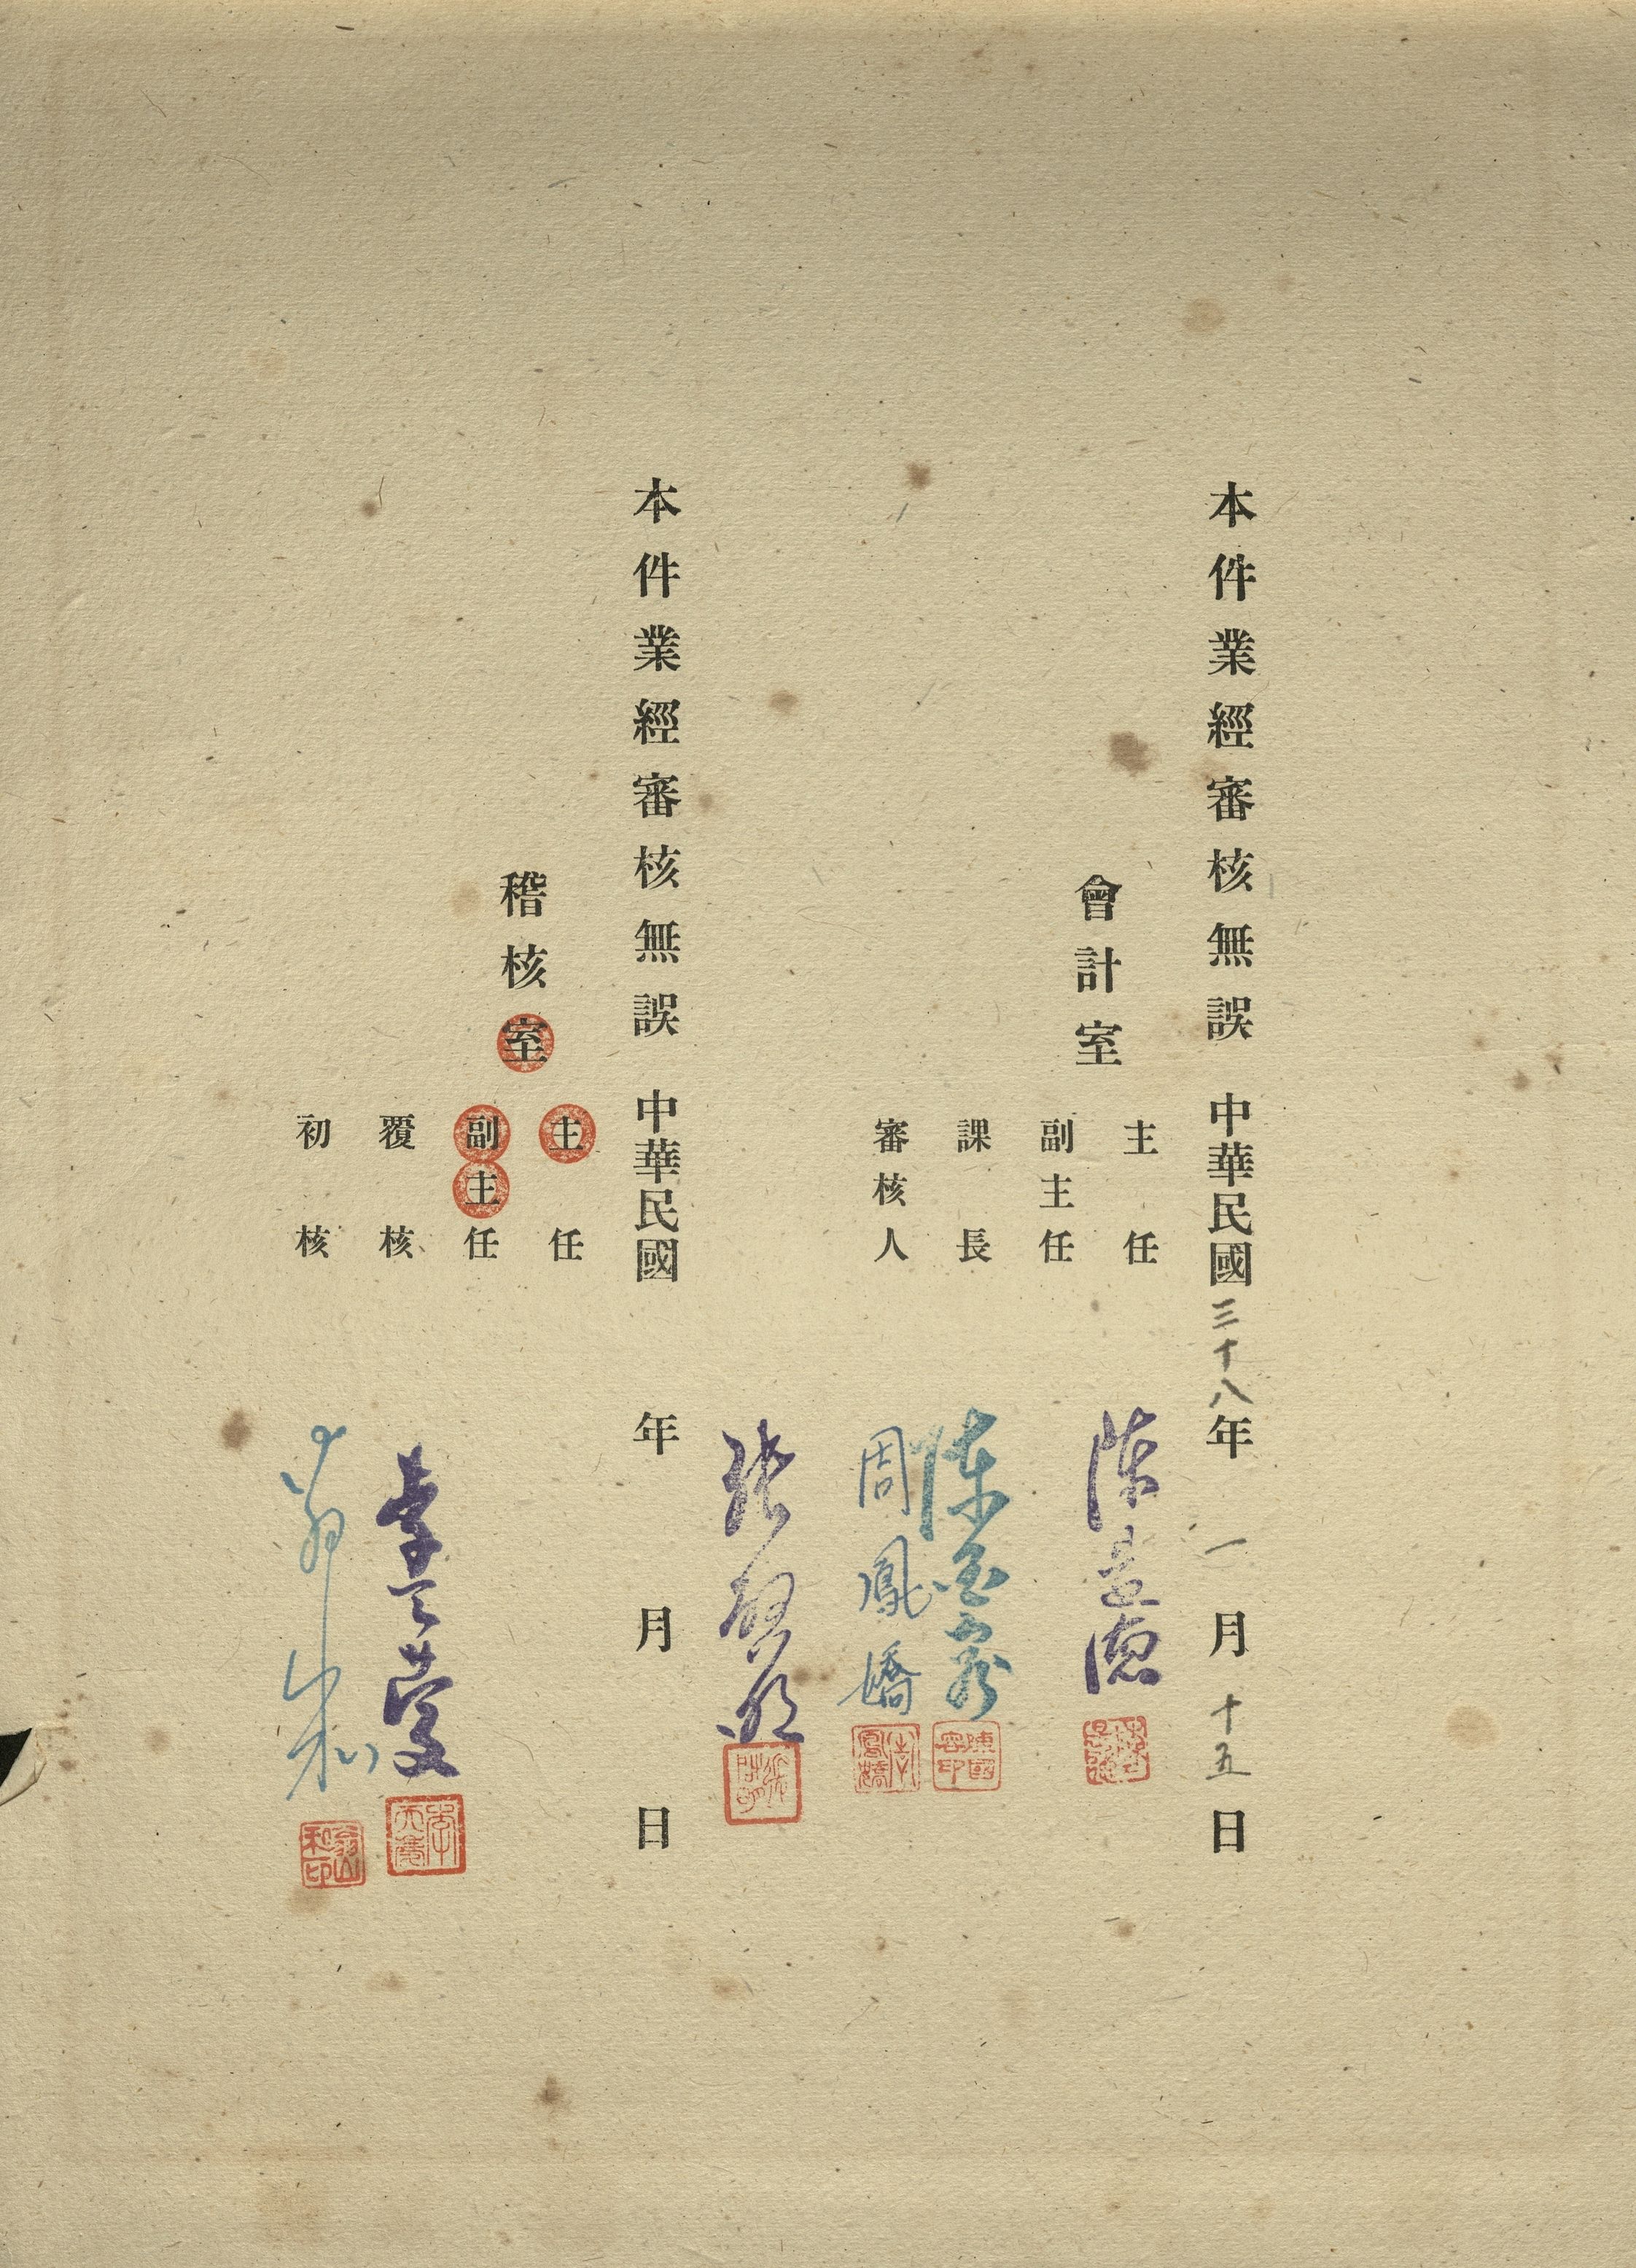 本件業經審核無誤 中華民國三十八年一月十五日
會計室
主任 陳
副主任
課長 陳國容
審核人 周鳳嬌
陳國容印
張
本件業經審核無誤 中華民國 年 月 日
稽核室
主任
副主任
覆核 李天慶
初核 翁山和
翁山和印